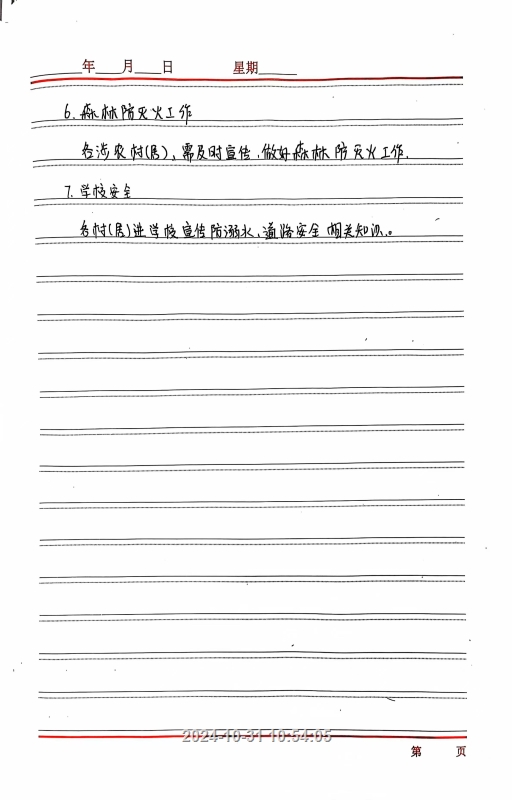 年 月 日 星期
6. 森林防灭火工作
各涉农村(居)、需及时宣传、做好森林防灭火工作.
7. 学校安全
各村(居)进学校宣传防溺水、道路安全相关知识。
2024-10-31 10:54:05
第 页